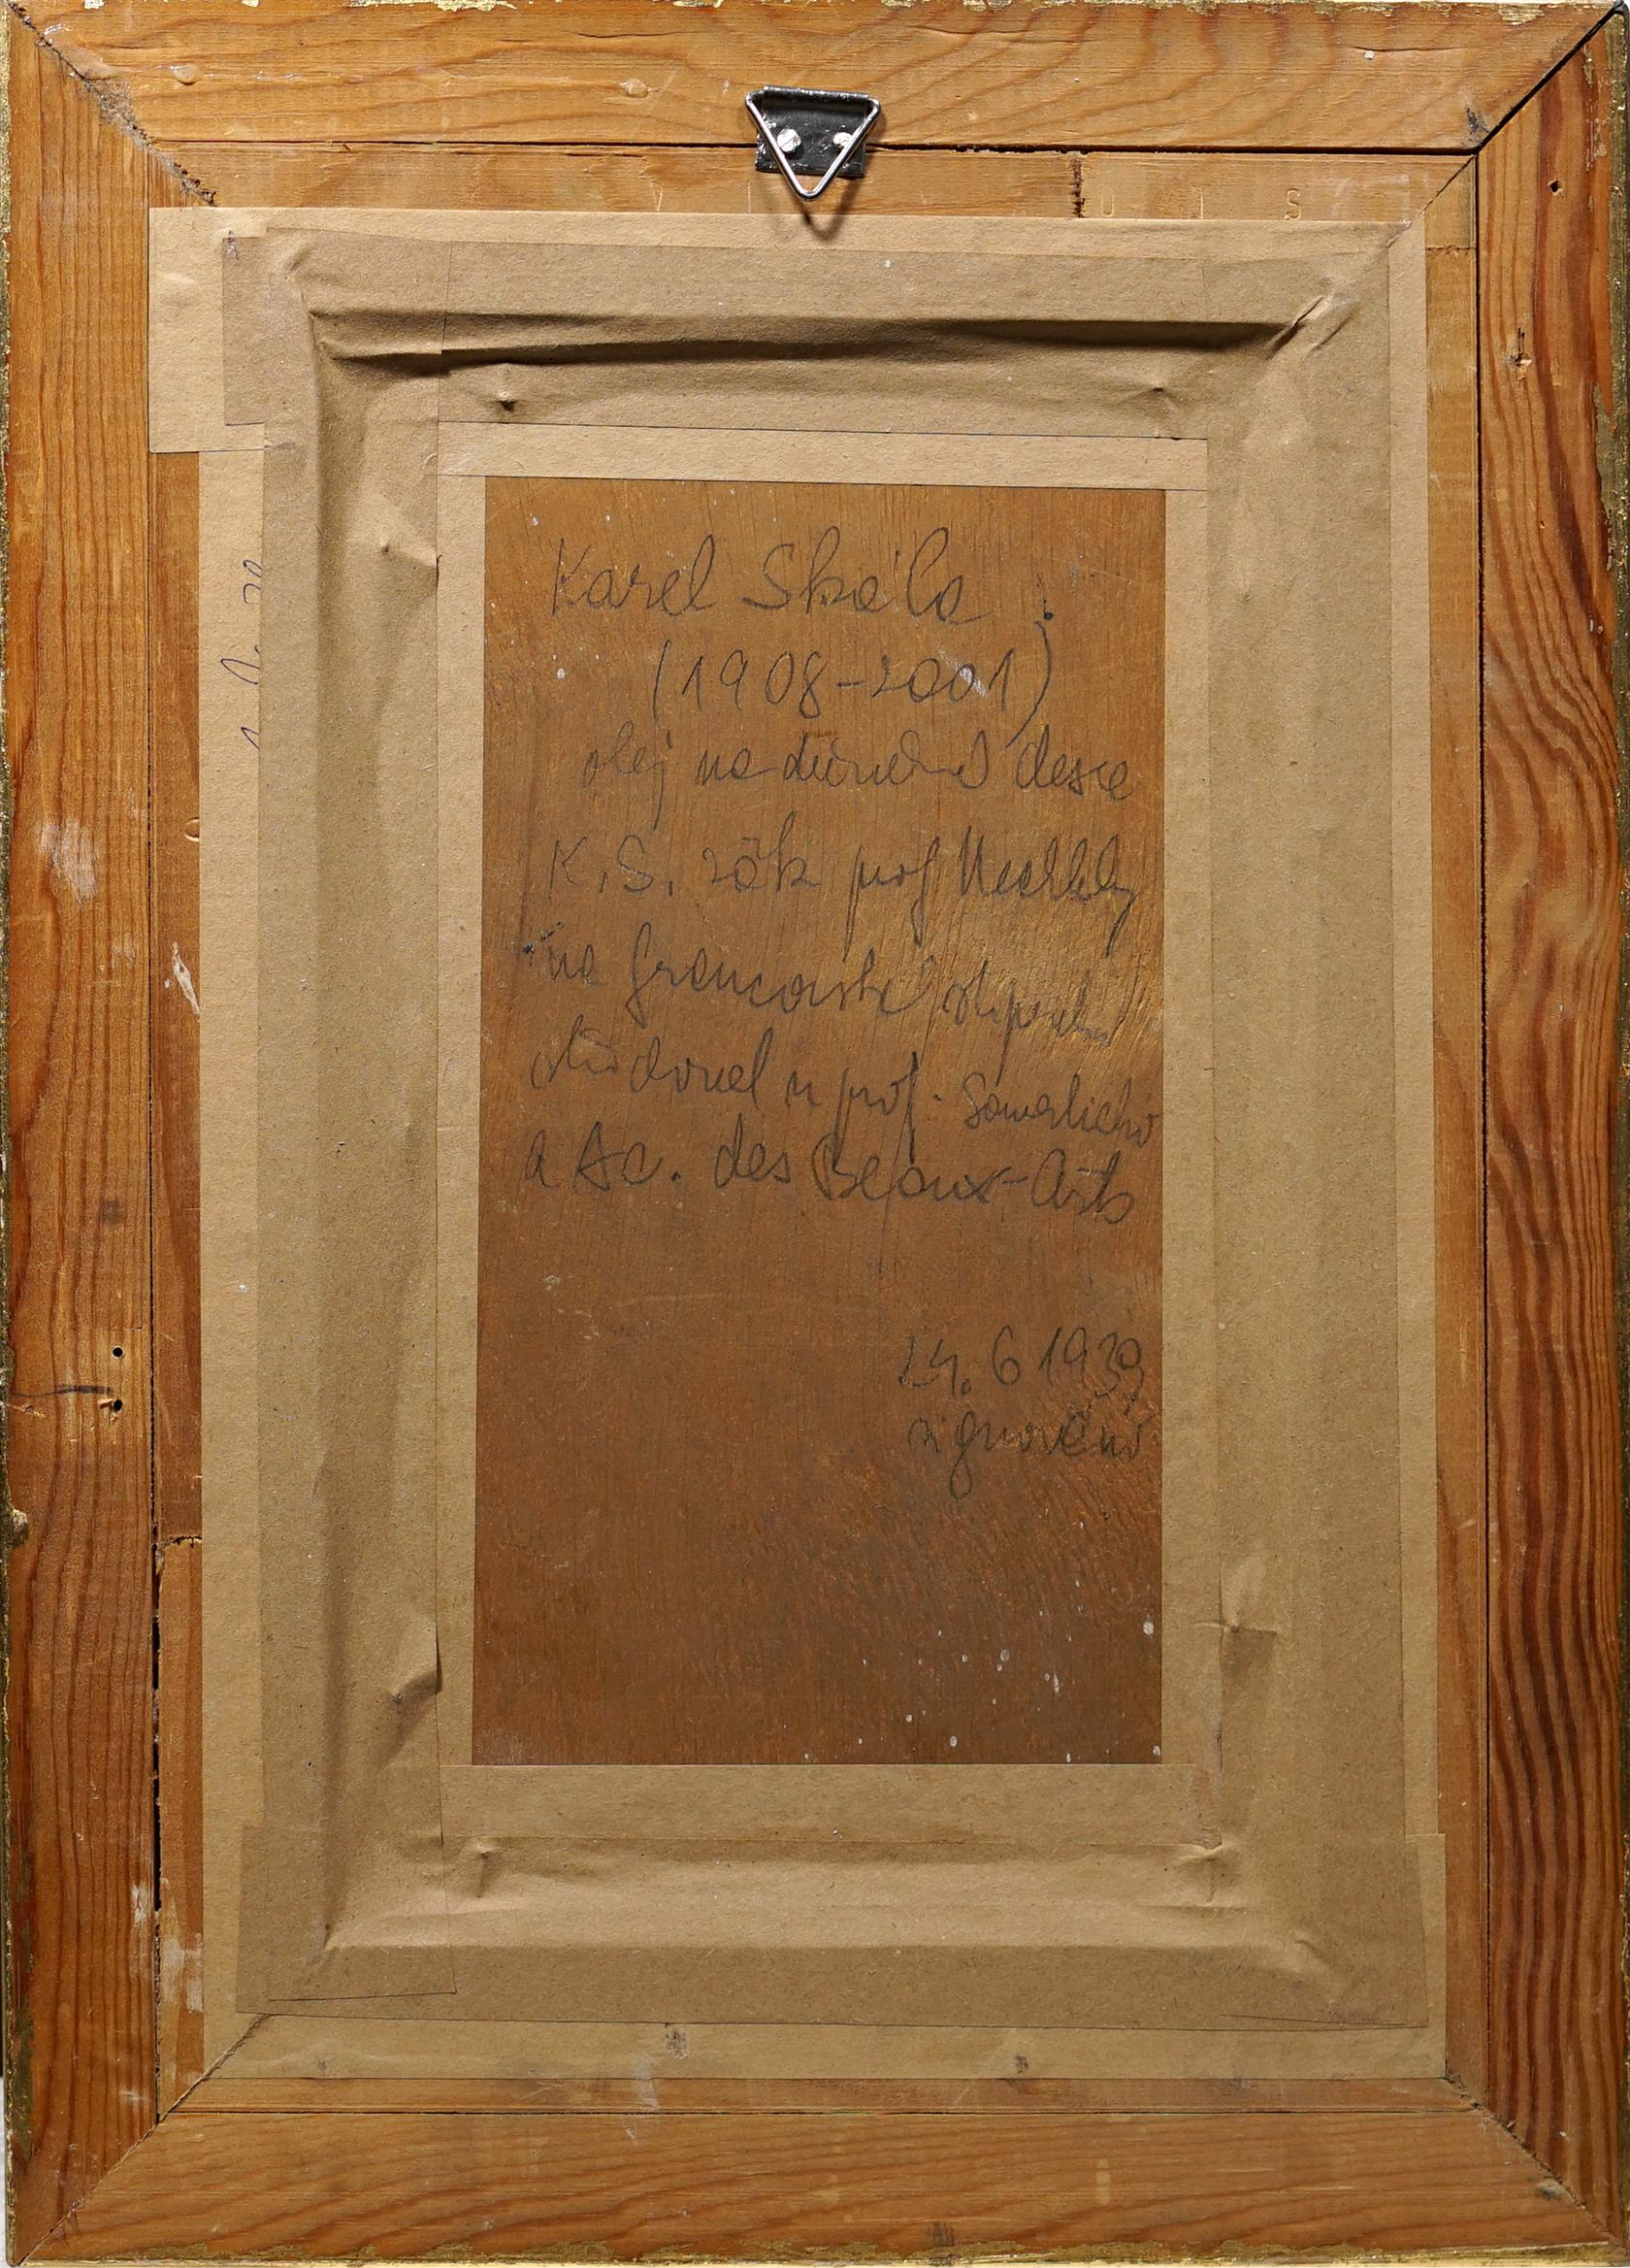 U T S
Karel Skála
(1908-2001)
olej na dřevě desce
K.S. žák prof Nechleby
na francouzské stipend
studoval u prof.
a Ac. des Beaux-Arts
24. 6 1939
signováno